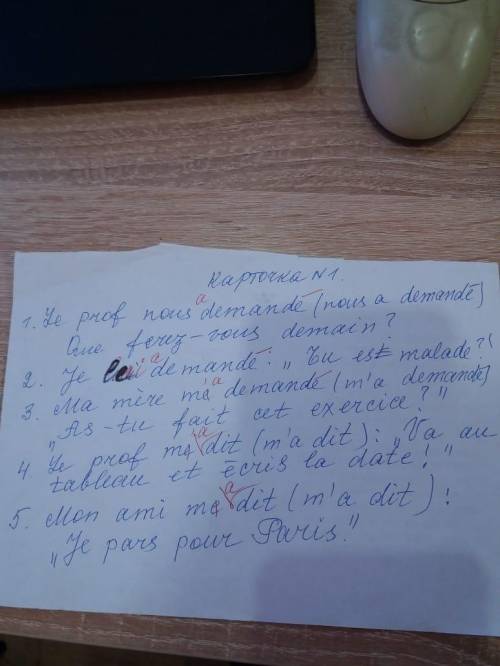 Карточка N1.
1. Le prof nous a demandé (nous a demandé)
Que ferez-vous demain?
2. Je lui a demandé: „Tu est malade?"
3. Ma mère m'a demandé (m'a demandé)
„As-tu fait cet exercice?"
4 Le prof me a dit (m'a dit): „Va au
tableau et écris la date!"
5. Mon ami me a dit (m'a dit):
„Je pars pour Paris."